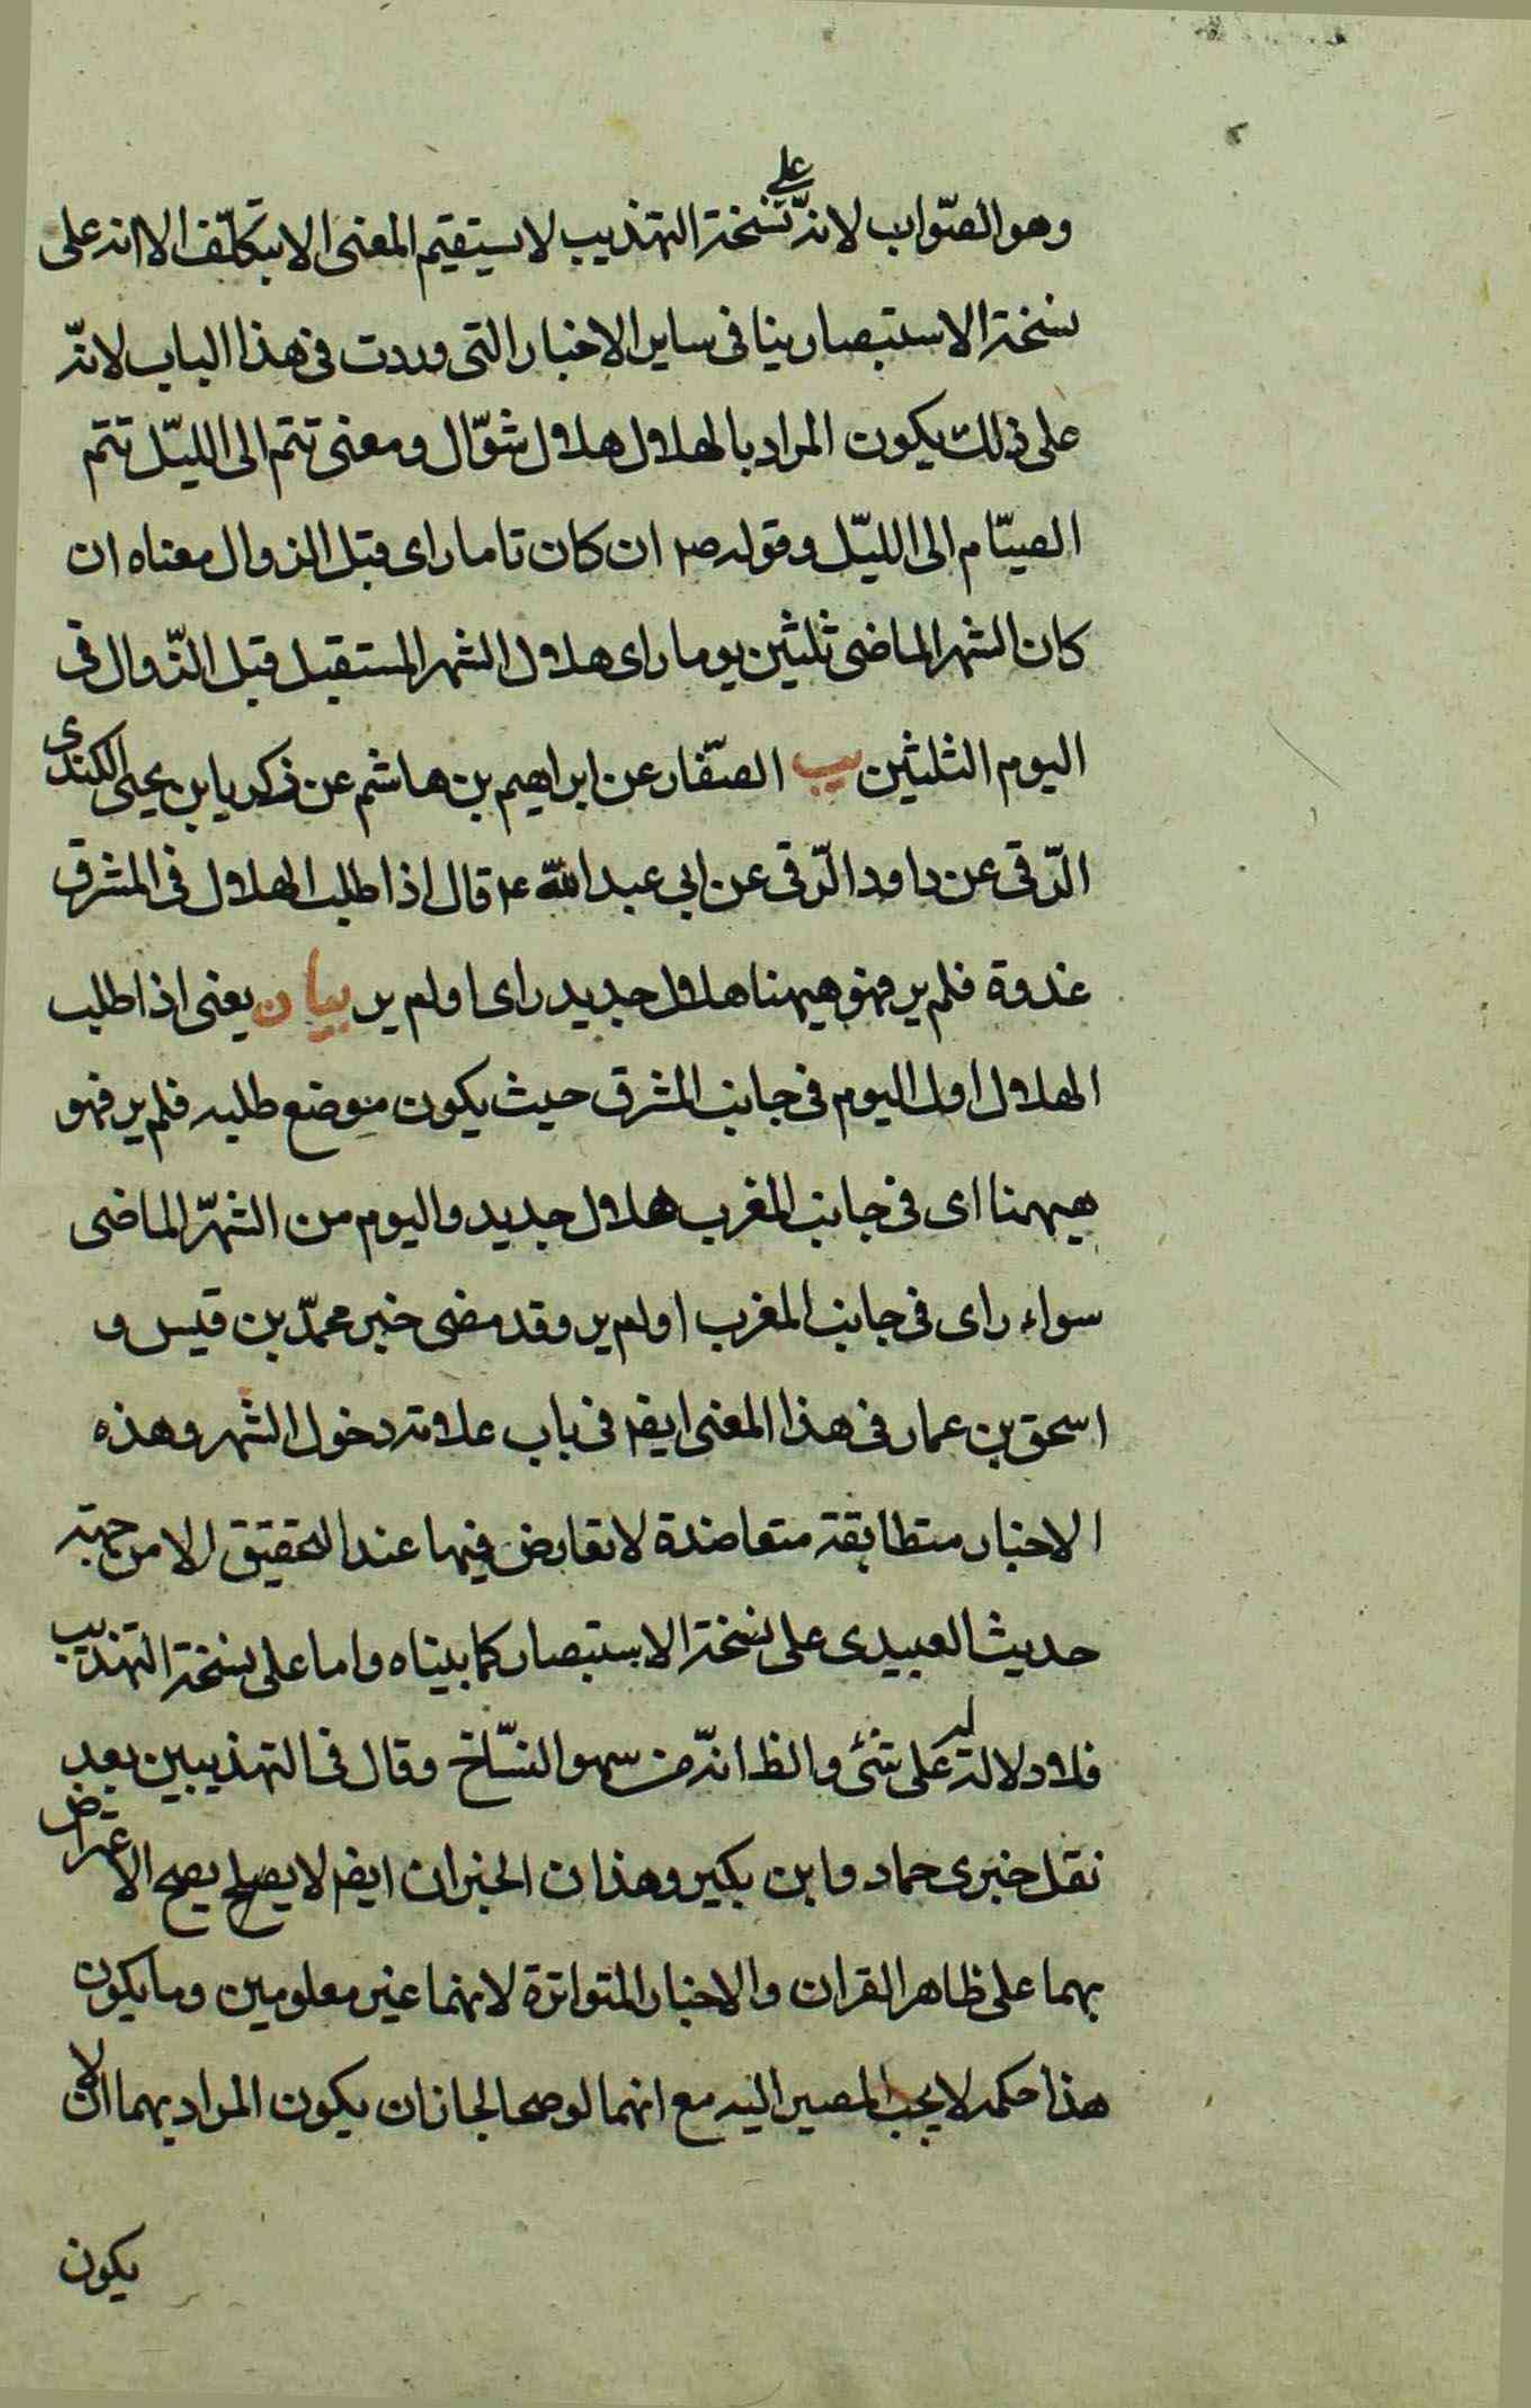 وهو الصّواب لانّه على نسخة التهذيب لا يستقيم المعنى الا بتكلّف الا انه على
نسخة الاستبصار ينافى ساير الاخبار التى وردت فى هذا الباب لانّه
على ذلك يكون المراد بالهلال هلال شوّال ومعنى تتم الى الليّل تتم
الصيّام الى الليّل وقوله ص ان كان تاما راى قبل الزوال معناه ان
كان الشهر الماضى ثلثين يوما راى هلال الشهر المستقبل قبل الزّوال فى
اليوم الثلثين يب الصّفار عن ابراهيم بن هاشم عن زكريا بن يحيى الكندى
الرّقى عن داود الرّقى عن ابى عبد الله ع قال اذا طلب الهلال فى المشرق
غدوة فلم ير فهو هيهنا هلال جديد راى او لم ير بيان يعنى اذا طلب
الهلال اول اليوم فى جانب المشرق حيث يكون موضع طلبه فلم ير فهو
هيهنا اى فى جانب المغرب هلال جديد واليوم من الشهّر الماضى
سواء راى فى جانب المغرب او لم ير وقد مضى خبر محمدّ بن قيس و
اسحق بن عمار فى هذا المعنى ايض فى باب علامة دخول الشهر وهذه
الاخبار متطابقة متعاضدة لا تعارض فيها عند التحقيق الا من جهة
حديث العبيدى على نسخة الاستبصار كما بيناه واما على نسخة التهذيب
فلا دلالة له على شئ والظ انّه من سهو النسّاخ وقال فى التهذيبين بعد
نقل خبرى حماد وابن بكير وهذان الخبران ايض لا يصلح يصح الاعتراض
بهما على ظاهر القران والاخبار المتواترة لانهما غير معلومين وما يكون
هذا حكمه لا يجب المصير اليه مع انهما لو صحا لجاز ان يكون المراد بهما ان لا
يكون